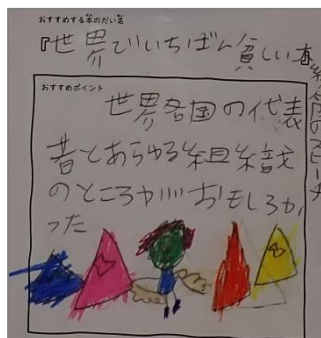 おすすめする本のだい名
『世界でいちばん貧しい
のスピーチ
おすすめポイント
世界各国の代表
者とあらゆる組織
のところがおもしろか
った